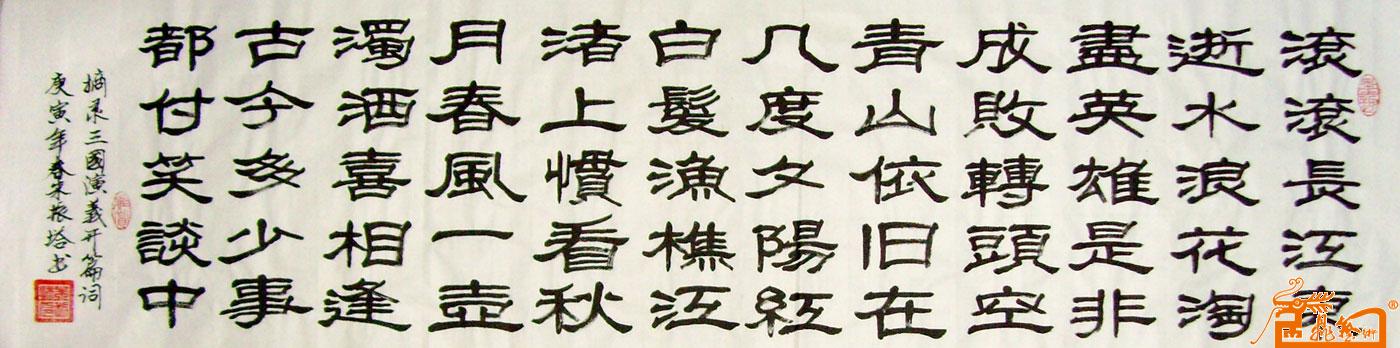 滾滾長江東
逝水浪花淘
盡英雄是非
成敗轉頭空
青山依旧在
几度夕陽紅
白髮漁樵江
渚上慣看秋
月春風一壺
濁酒喜相逢
古今多少事
都付笑談中
摘录三國演義开篇词
庚寅年春宋振塔书